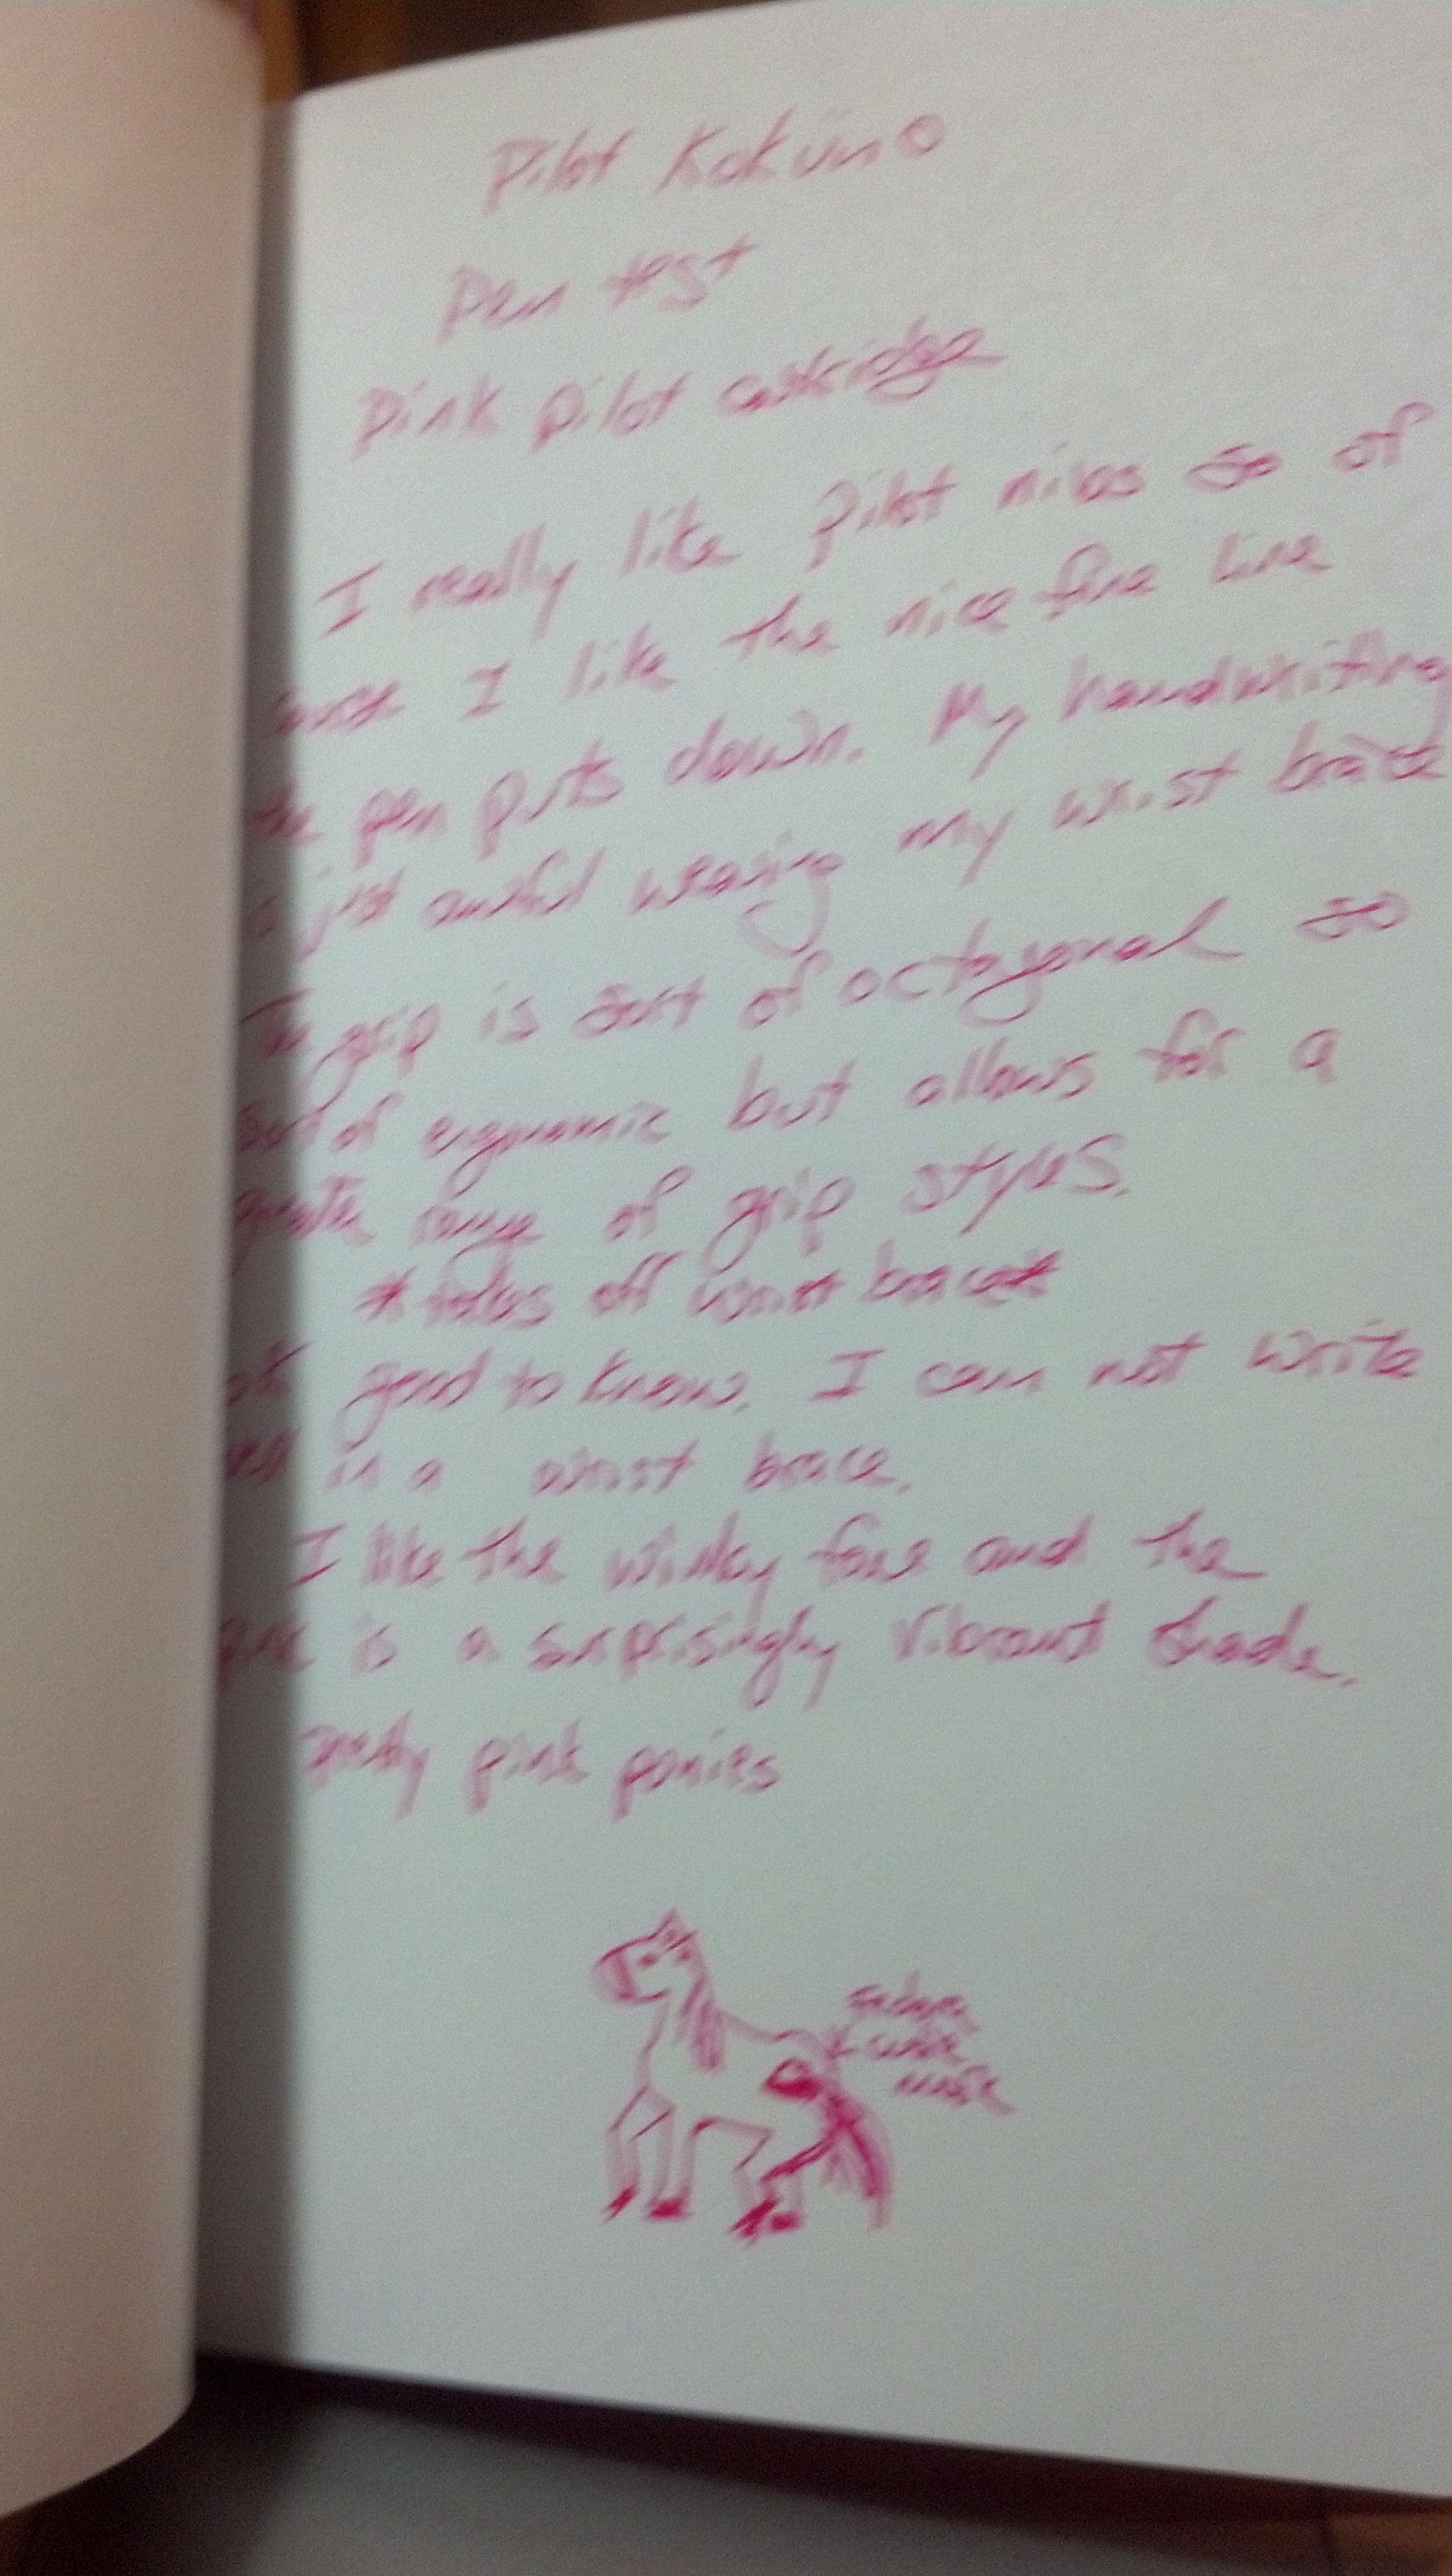 Pilot Kaküno
Pen test
Pink pilot cartridge
I really like pilot nibs so of
course I like the nice fine line
the pen puts down. My handwriting
is just awful wearing my wrist brace
The grip is sort of octagonal so
sort of ergonomic but allows for a
greater range of grip styles.
*takes off wrist brace*
ok good to know. I can not write
well in a wrist brace.
I like the winky face and the
pink is a surprisingly vibrant shade.
pretty pink ponies
fedora
cutie
mark